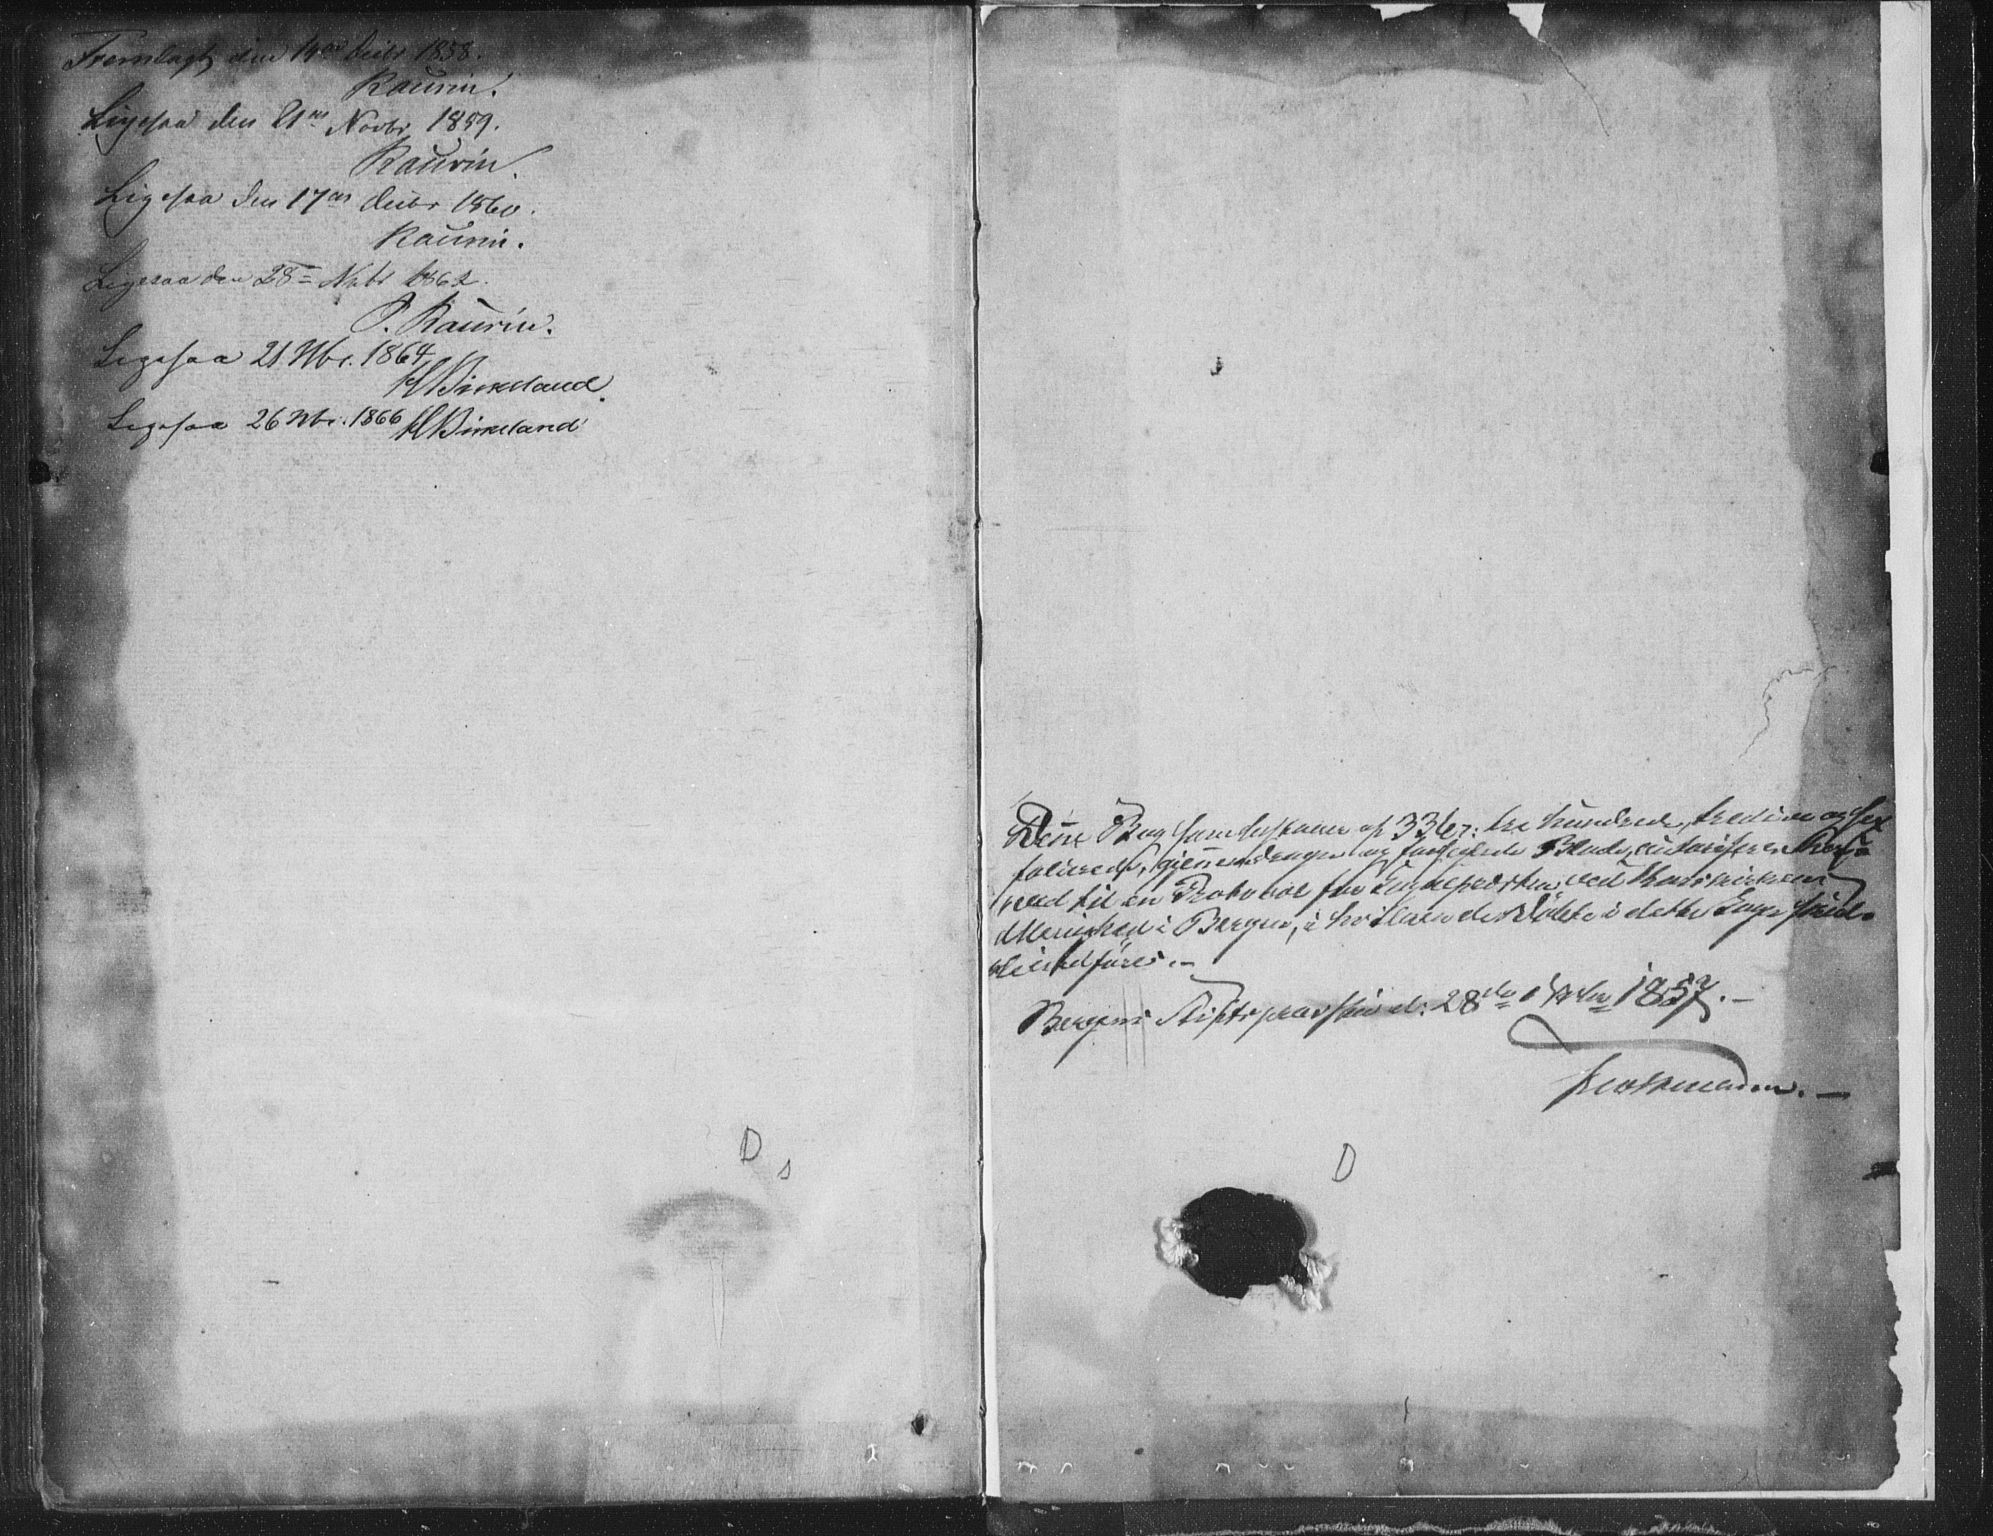 Fremlagt den 14de Decbr 1858.
Kaurin.
Ligesaa den 21de Novbr 1859.
Kaurin.
Ligesaa den 17de Decbr 1860.
Kaurin.
Ligesaa den 28de Nvbr 1862.
P. Kaurin.
Ligesaa 21 Nbr. 1864
H Birkeland.
Ligesaa 26 Nbr. 1866 H Birkeland
D
Denne Bog bestaaende af 336 : tre hundrede, tredive og sex
folierede, gjennemdragne og forseglede Blade, autoriseres her-
ved til en Protokol for Sognepræsten ved Korskirkens
Menighed i Bergen, i hvilken de Døbte i dette Sogn
indføres.
Bergens Stiftsprovsti d: 28de 1857.
D